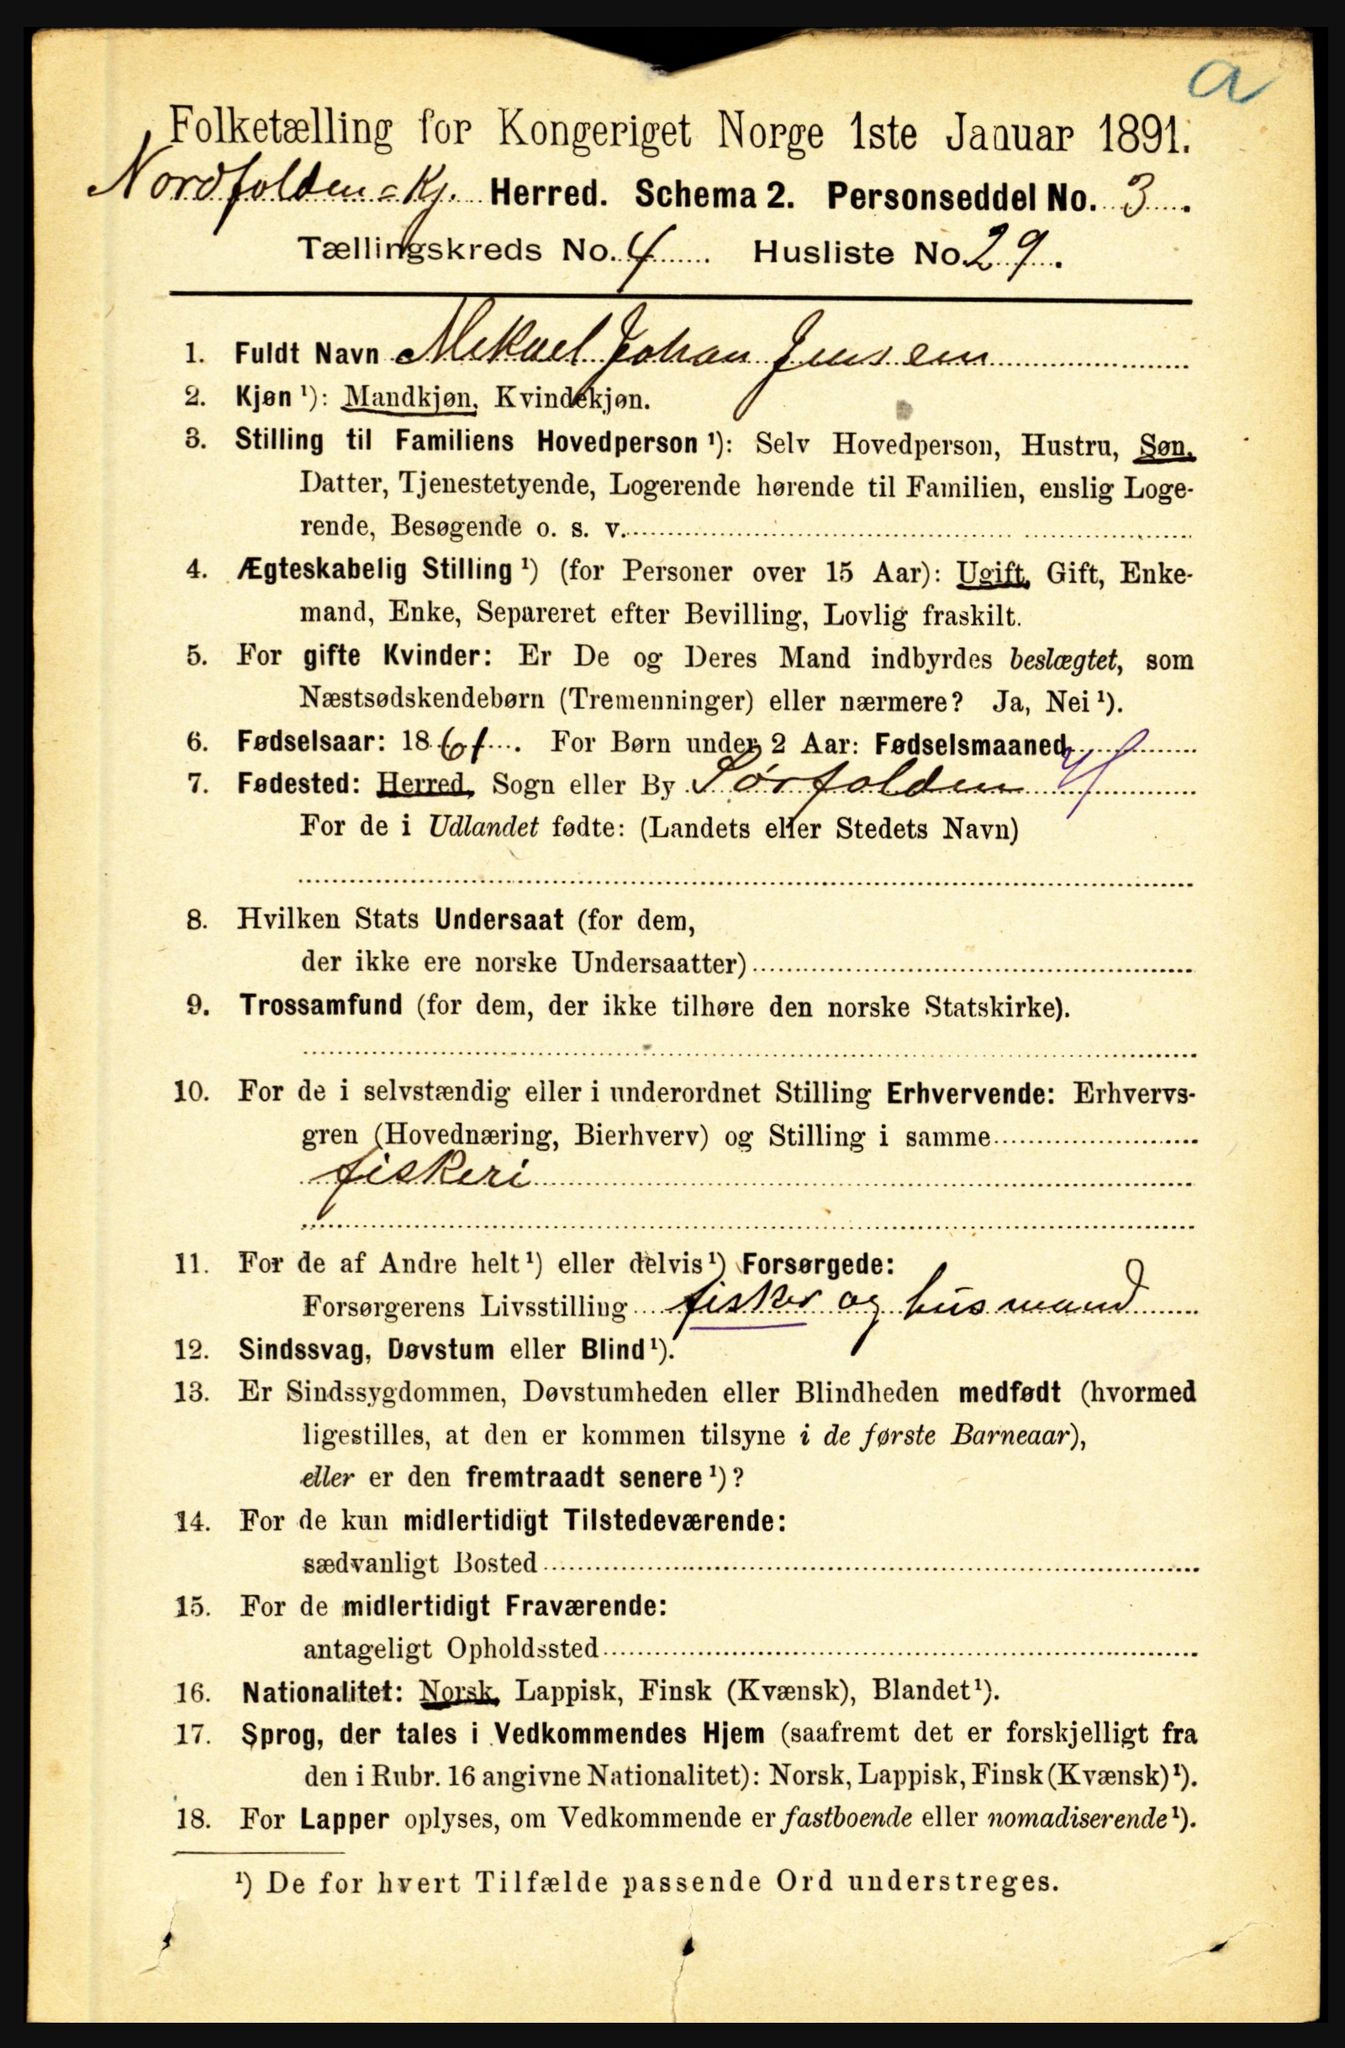 a
Folketælling for Kongeriget Norge 1ste Januar 1891.
Nordfolden=Kj. Herred. Schema 2. Personseddel No. 3.
Tællingskreds No. 4 Husliste No. 29.
1. Fuldt Navn Mikael Johan Jensen
2. Kjøn ¹): Mandkjøn, Kvindekjøn.
3. Stilling til Familiens Hovedperson ¹): Selv Hovedperson, Hustru, Søn,
Datter, Tjenestetyende, Logerende hørende til Familien, enslig Loge-
rende, Besøgende o. s. v.
4. Ægteskabelig Stilling ¹) (for Personer over 15 Aar): Ugift, Gift, Enke-
mand, Enke, Separeret efter Bevilling, Lovlig fraskilt.
5. For gifte Kvinder: Er De og Deres Mand indbyrdes beslægtet, som
Næstsødskendebørn (Tremenninger) eller nærmere? Ja, Nei ¹).
6. Fødselsaar: 1861. For Børn under 2 Aar: Fødselsmaaned
7. Fødested: Herred, Sogn eller By Sørfolden
For de i Udlandet fødte: (Landets eller Stedets Navn)
8. Hvilken Stats Undersaat (for dem,
der ikke ere norske Undersaatter)
9. Trossamfund (for dem, der ikke tilhøre den norske Statskirke).
10. For de i selvstændig eller i underordnet Stilling Erhvervende: Erhvervs-
gren (Hovednæring, Bierhverv) og Stilling i samme
fiskeri
11. For de af Andre helt ¹) eller delvis ¹) Forsørgede:
Forsørgerens Livsstilling fisker og husmand
12. Sindssvag, Døvstum eller Blind ¹).
13. Er Sindssygdommen, Døvstumheden eller Blindheden medfødt (hvormed
ligestilles, at den er kommen tilsyne i de første Barneaar),
eller er den fremtraadt senere ¹)?
14. For de kun midlertidigt Tilstedeværende:
sædvanligt Bosted
15. For de midlertidigt Fraværende:
antageligt Opholdssted
16. Nationalitet: Norsk, Lappisk, Finsk (Kvænsk), Blandet ¹).
17. Sprog, der tales i Vedkommendes Hjem (saafremt det er forskjelligt fra
den i Rubr. 16 angivne Nationalitet): Norsk, Lappisk, Finsk (Kvænsk) ¹).
18. For Lapper oplyses, om Vedkommende er fastboende eller nomadiserende ¹).
¹) De for hvert Tilfælde passende Ord understreges.